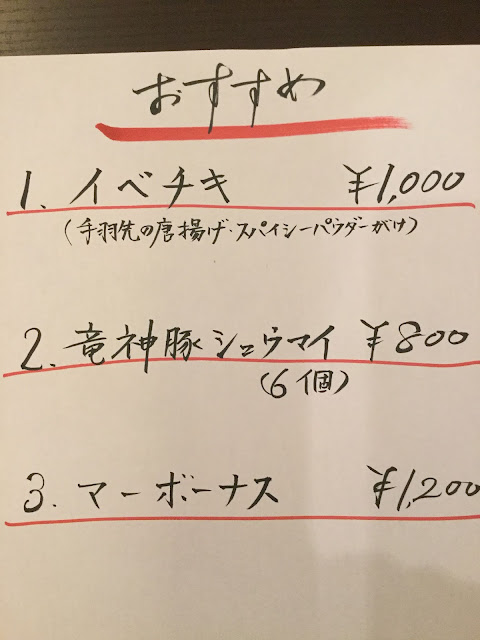 おすすめ
1. イベチキ ¥1,000
(手羽先の唐揚げ・スパイシーパウダーがけ)
2. 竜神豚シュウマイ ¥800
(6個)
3. マーボーナス ¥1,200